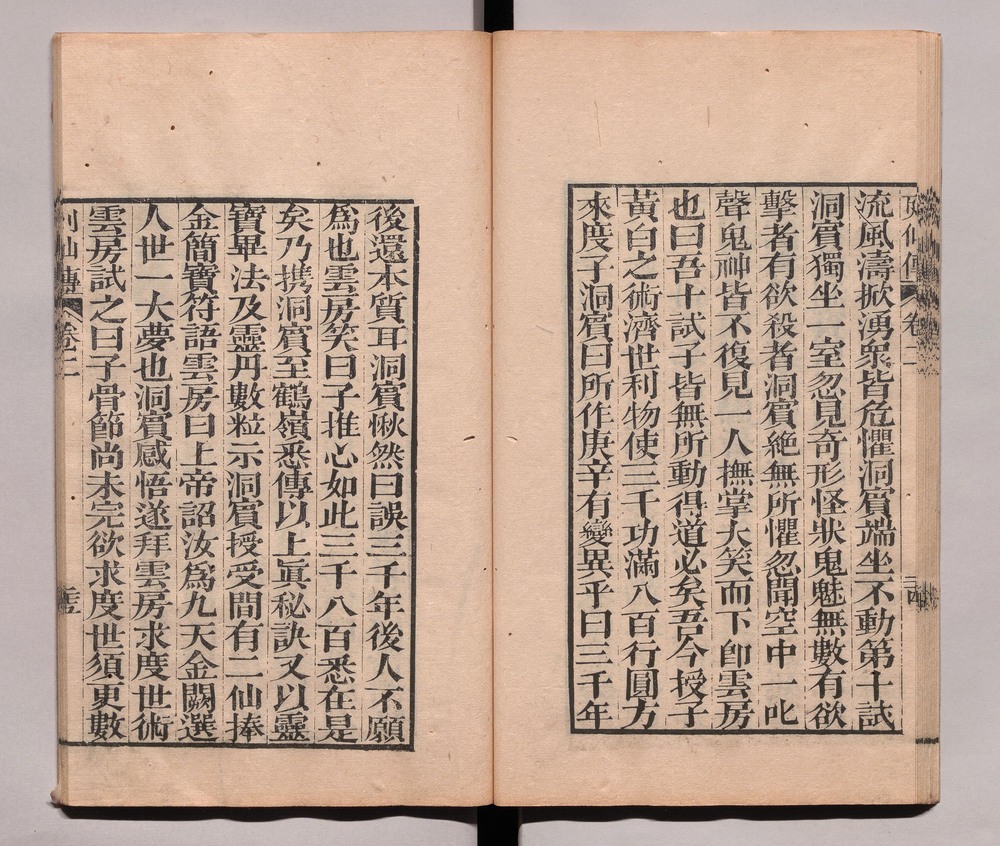 列仙傳 卷二 三四
流風濤掀湧衆皆危懼洞賓端坐不動第十試
洞賓獨坐一室忽見奇形怪狀鬼魅無數有欲
擊者有欲殺者洞賓絶無所懼忽聞空中一叱
聲鬼神皆不復見一人撫掌大笑而下卽雲房
也曰吾十試子皆無所動得道必矣吾今授子
黃白之術濟世利物使三千功滿八百行圓方
來度子洞賓曰所作庚辛有變異乎曰三千年
後還本質耳洞賓愀然曰誤三千年後人不願
爲也雲房笑曰子推心如此三千八百悉在是
矣乃携洞賓至鶴嶺悉傳以上眞秘訣又以靈
寶畢法及靈丹數粒示洞賓授受間有二仙捧
金簡寶符語雲房曰上帝詔汝爲九天金闕選
人世一大夢也洞賓感悟遂拜雲房求度世術
雲房試之曰子骨節尚未完欲求度世須更數
列仙傳 卷二